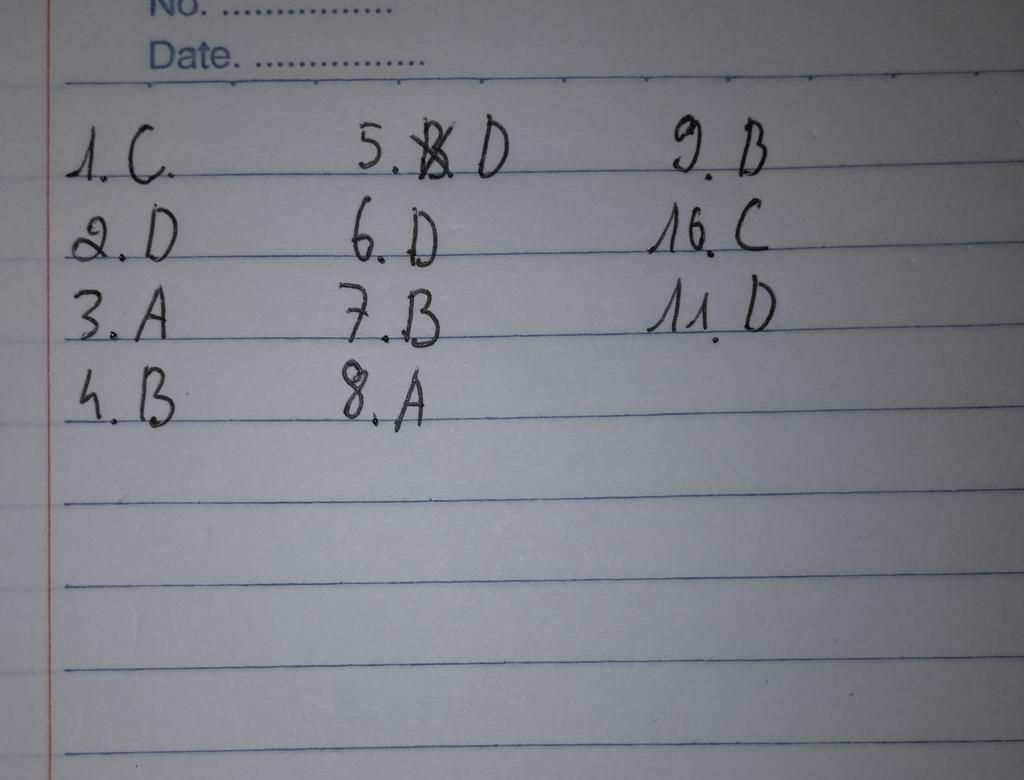 No. ................
Date. ................
1. C.
2. D
3. A
4. B
5. D
6. D
7. B
8. A
9. B
10. C
11. D